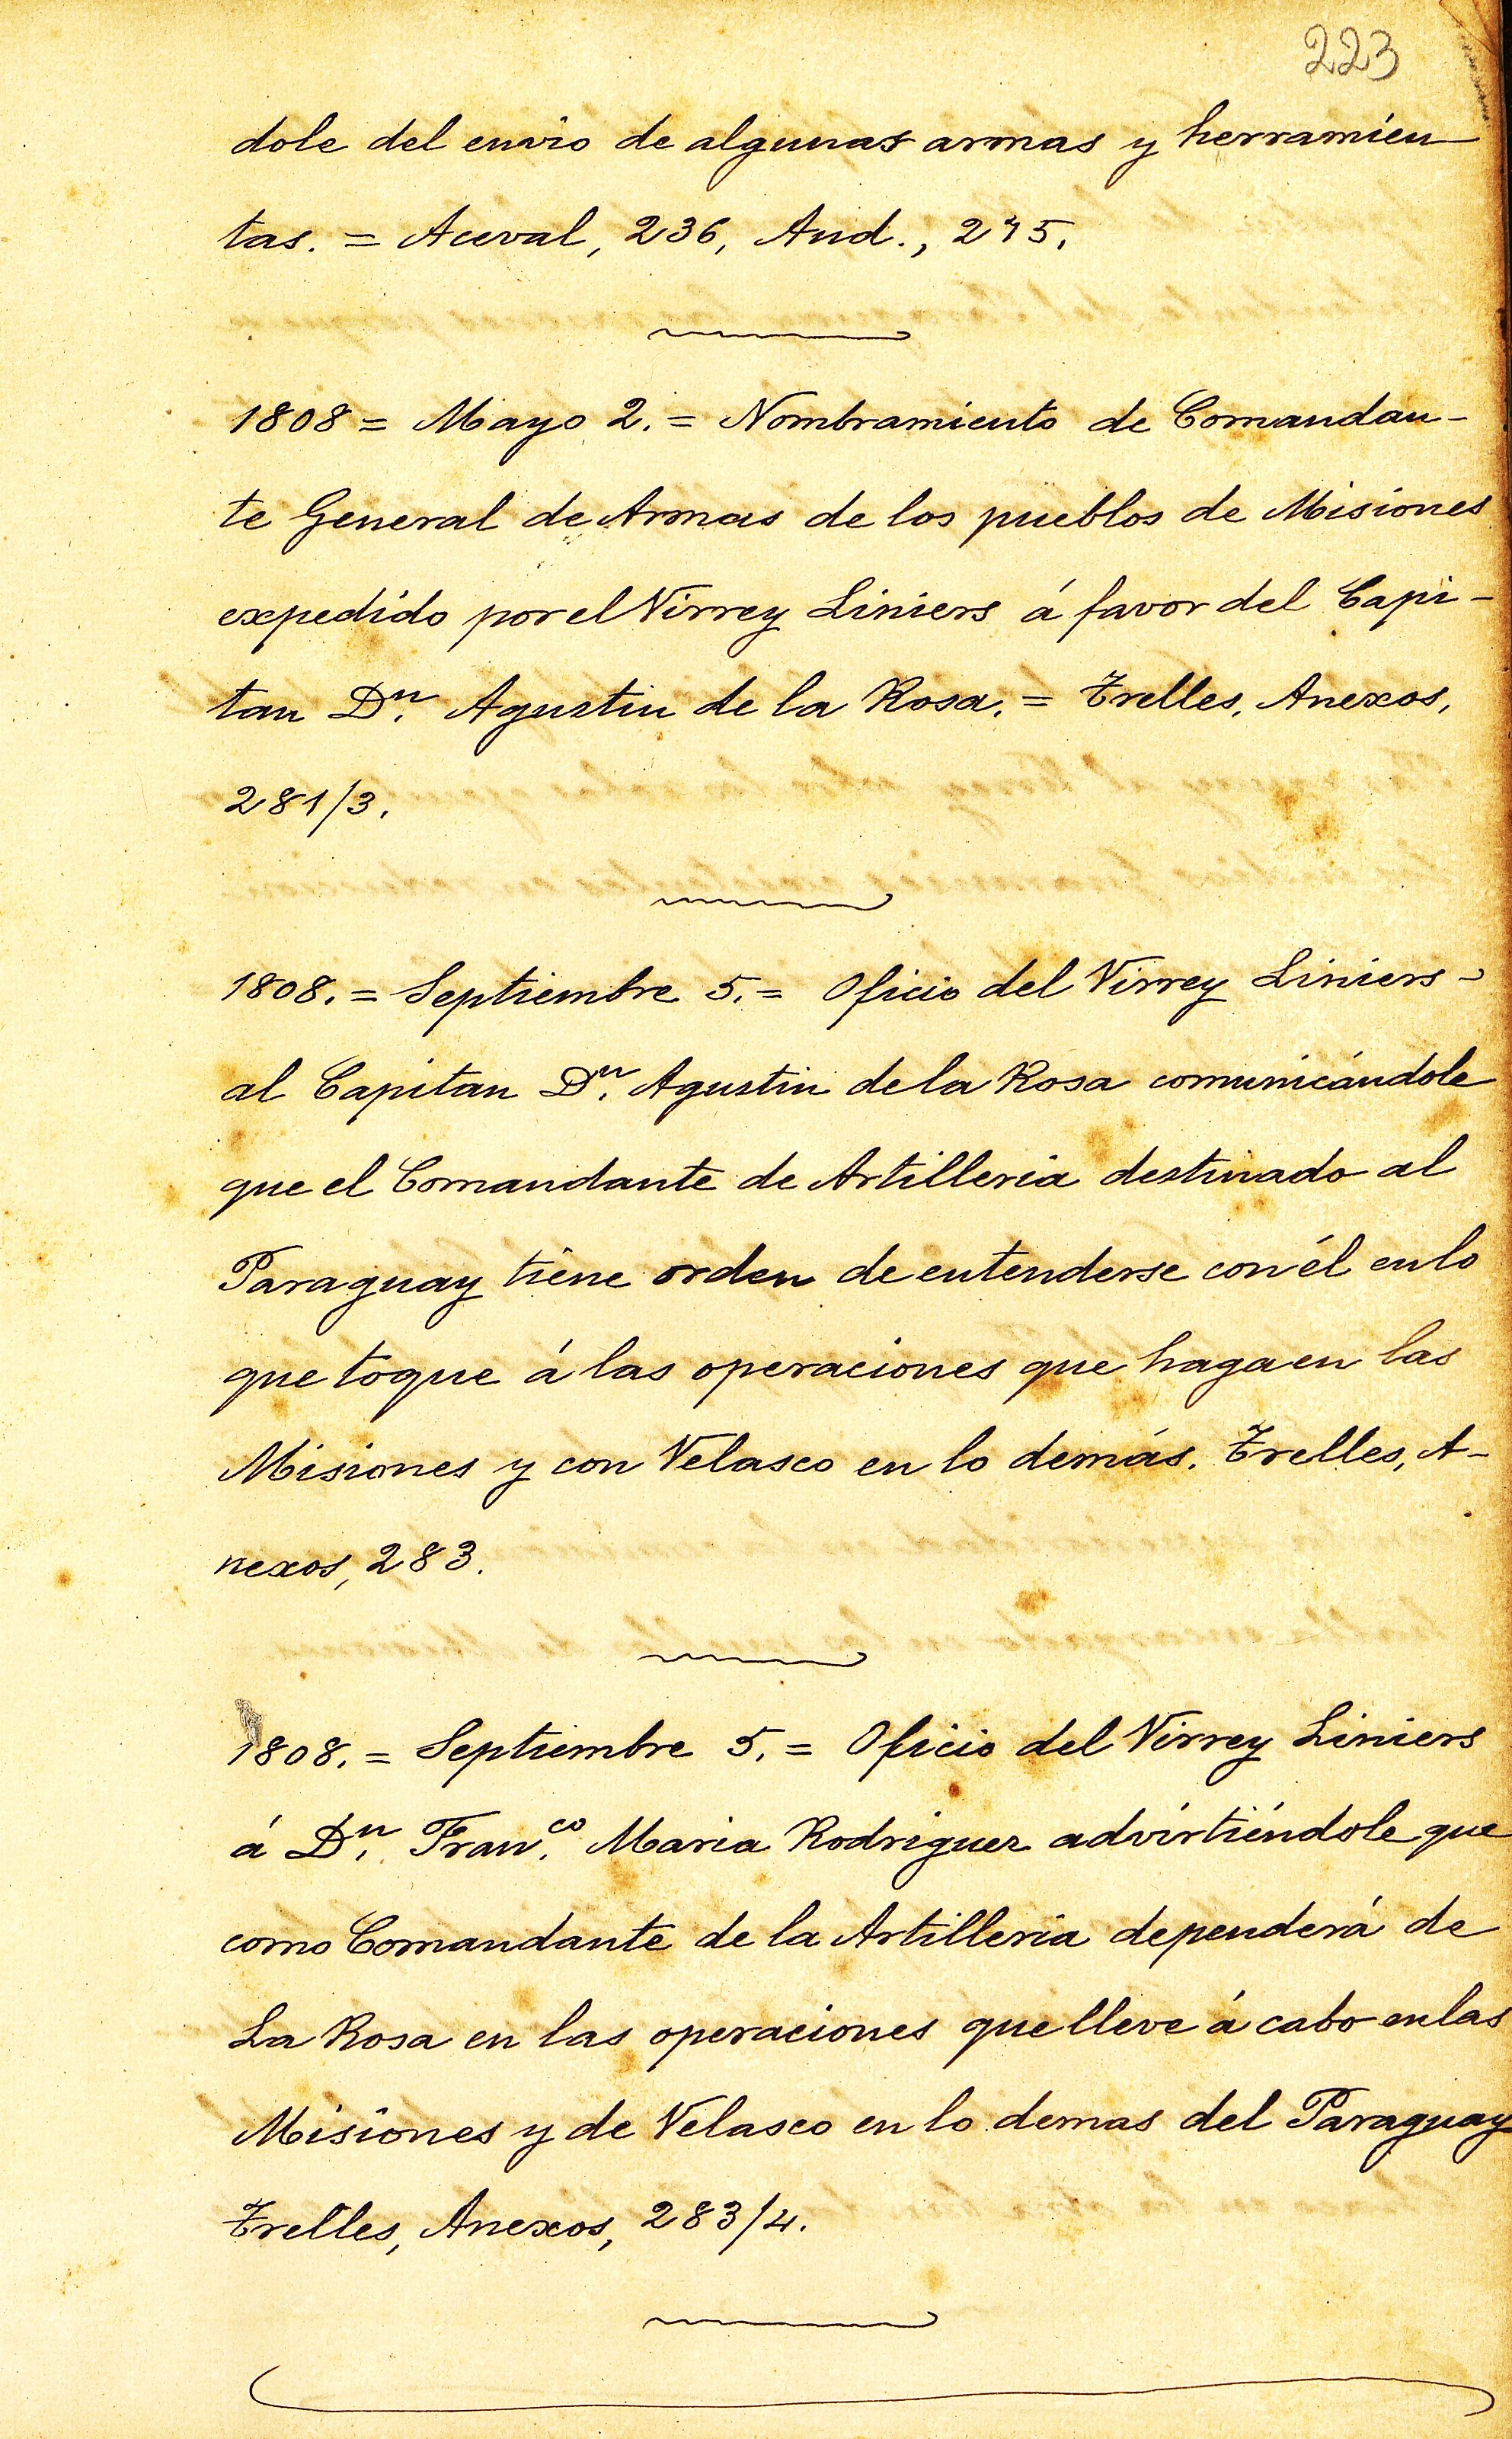 223
dole del envio de algunas armas y herramien
tas. = Aceval, 236, Aud., 245.
1808 = Mayo 2. = Nombramiento de Comandan-
te General de Armas de los pueblos de Misiones
expedido por el Virrey Liniers á favor del Capi-
tan Dn. Agustin de la Rosa. = Trelles, Anexos,
281/3.
1808. = Septiembre 5. = Oficio del Virrey Liniers -
al Capitan Dn. Agustin de la Rosa comunicándole
que el Comandante de Artilleria destinado al
Paraguay tiene orden de entenderse con él en lo
que toque á las operaciones que haga en las
Misiones y con Velasco en lo demás. Trelles, A-
nexos, 283.
1808. = Septiembre 5. = Oficio del Virrey Liniers
á Dn. Franco. Maria Rodriguez advirtiéndole que
como Comandante de la Artilleria dependerá de
La Rosa en las operaciones que lleve á cabo en las
Misiones y de Velasco en lo demas del Paraguay
Trelles, Anexos, 283/4.